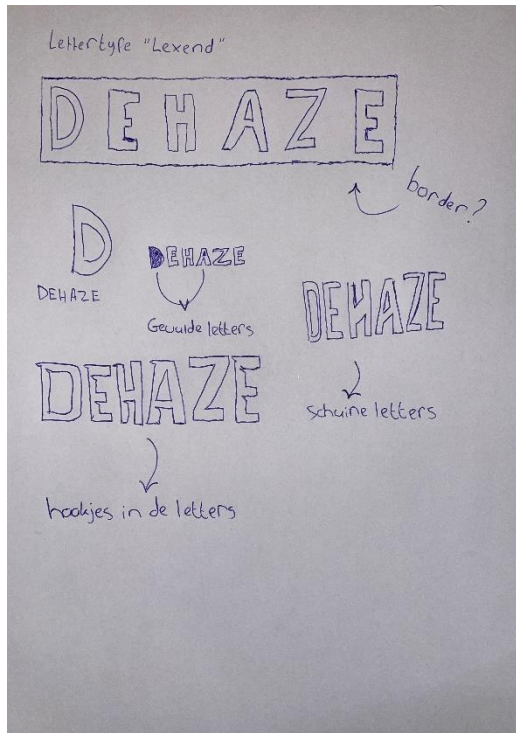 Lettertype "Lexend"
DEHAZE
border?
D
DEHAZE
DEHAZE
Gevulde letters
DEHAZE
schuine letters
DEHAZE
hoekjes in de letters